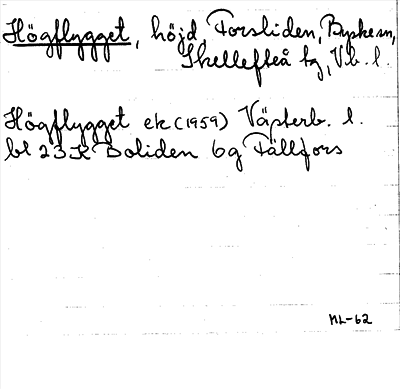 Högflygget, höjd, Forsliden, Byske sn,
Skellefteå tg, Vb. l.
Högflygget ek (1959) Västerb. l.
bl 23 K Boliden 6g Fällfors
ML-62